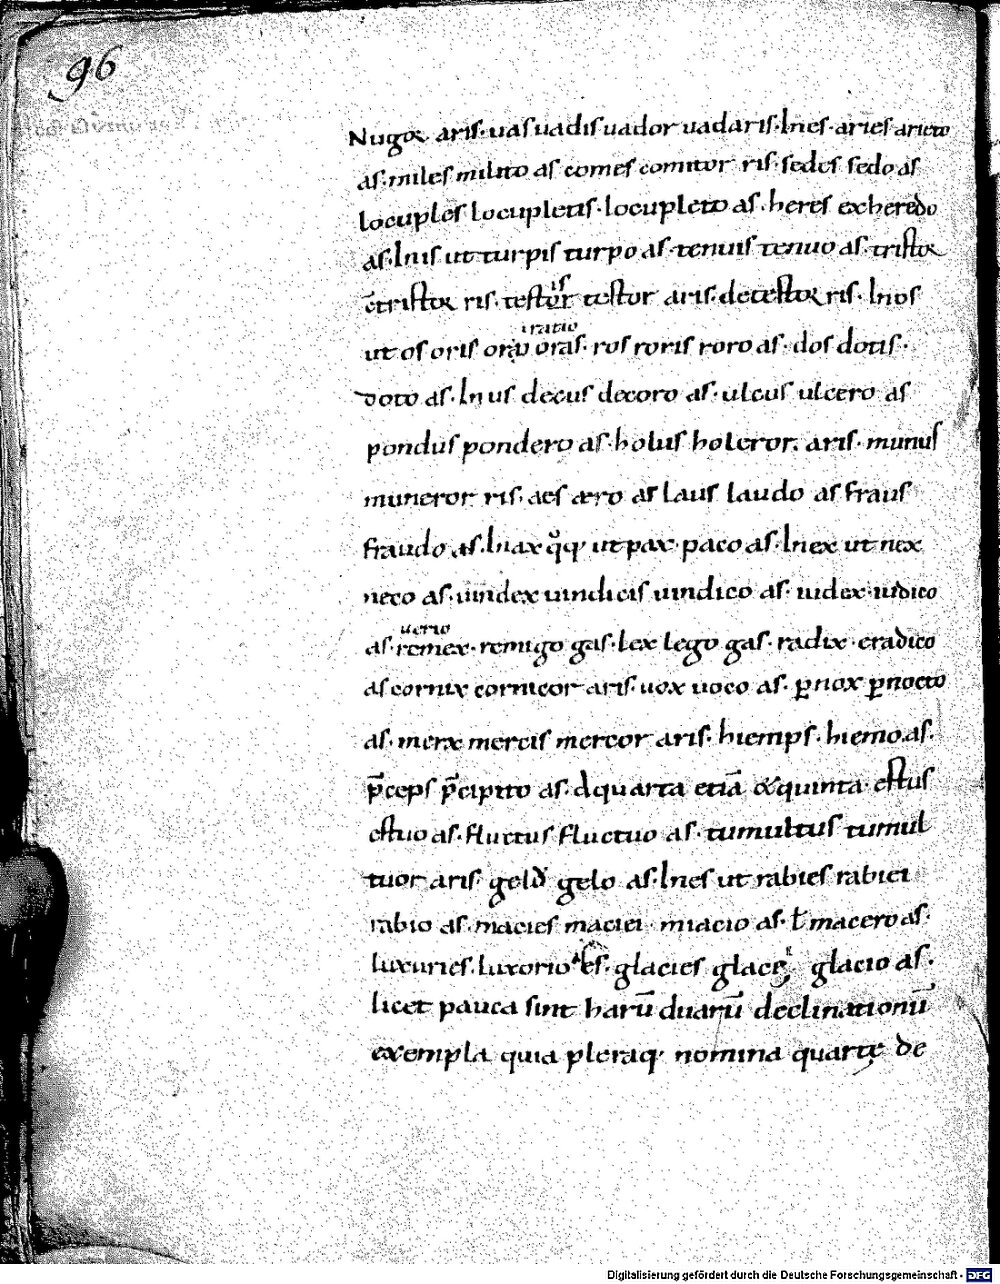 96
Nugor aris. uas uadis uador uadaris. In es. aries arieto
as. miles milito as comes comitor ris. sedes sedo as
locuples locupletis. locupleto as. heres exheredo
as. In is ut turpis turpo as. tenuis tenuo as. tristor
c̄tristor ris. testor testor aris. detestor ris. In os
is
ut os oris oro oras. ros roris roro as. dos dotis.
iratio
doto as. In us decus decoro as. ulcus ulcero as
pondus pondero as. holus holeror. aris. munus
muneror ris. aes æro as laus laudo as fraus
fraudo as. In ax qͦq; ut pax. paco as. In ex ut nex
neco as. uindex uindicis uindico as. iudex. iudico
uerio
as. remex. remigo gas. lex lego gas. radix. eradico
as cornix cornicor aris. uox uoco as. ꝑnox ꝑnocto
as. merx mercis mercor aris. hiemps. hiemo. as.
p̄ceps p̄cipito as. d quarta etiā & quinta. estus
estuo as. fluctus fluctuo as. tumultus tumul
tuor aris. gelu gelo as. In es ut rabies rabiei
rabio as. macies maciei. macio as. ƚ macero as.
luxuries. luxorio as. glacies glaciei glacio as.
licet pauca sint harū duarū declinationū
exempla quia pleraq; nomina quartę de
Digitalisierung gefördert durch die Deutsche Forschungsgemeinschaft - DFG